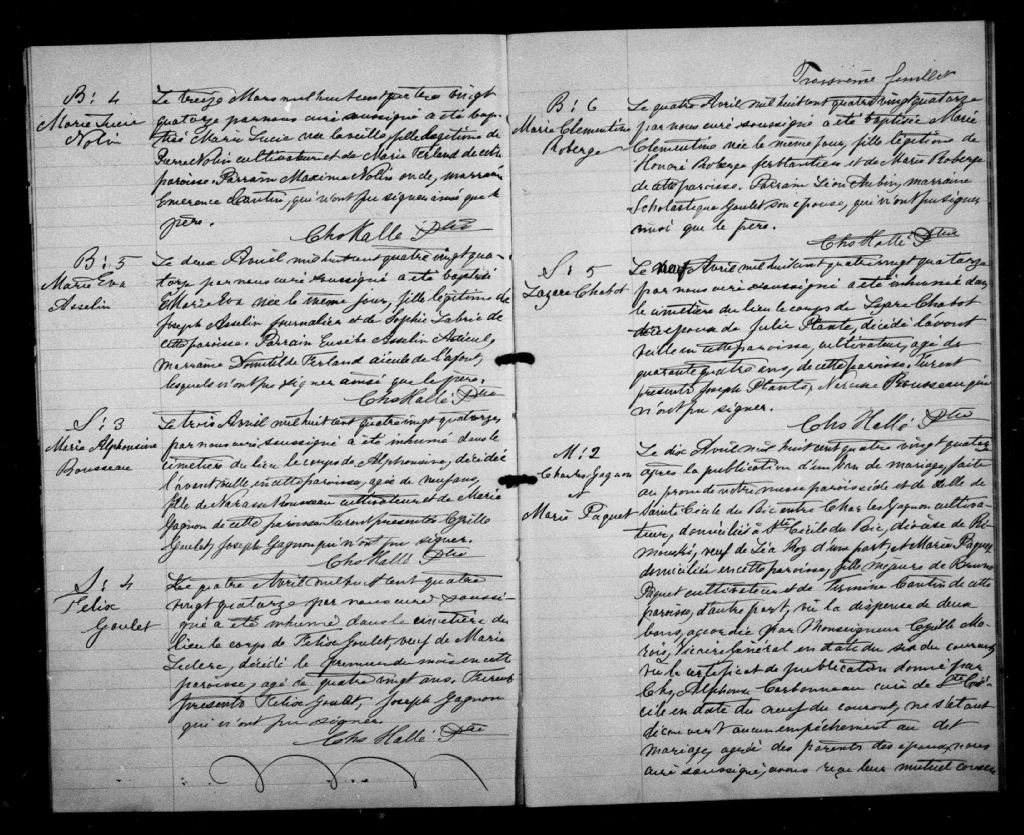 B: 4
Marie Lucie
Nolin
Le treize Mars mil huit cent quatre vingt
quatorze par nous curé soussigné a été bap-
tisée Marie Lucie née la veille, fille légitime de
Pierre Nolin cultivateur et de Marie Ferland de cette
paroisse. Parrain Maxime Nolin oncle, marraine
Emerance Cantin, qui n'ont pu signer ainsi que le
père.
Chs Hallé Ptre
B: 5
Marie Eva
Asselin
Le deux Avril mil huit cent quatre vingt qua-
torze par nous curé soussigné a été baptisée
Marie Eva née le même jour, fille légitime de
Joseph Asselin journalier et de Sophie Labrie de
cette paroisse. Parrain Eusèbe Asselin Aïeul,
marraine Domitilde Ferland aïeule de l'enfant,
lesquels n'ont pu signer ainsi que le père.
Chs Hallé Ptre
S: 3
Marie Alphonsine
Rousseau
Le trois Avril mil huit cent quatre vingt quatorze,
par nous curé soussigné a été inhumé dans le
cimetière du lieu le corps de Alphonsine, décédée
l'avant veille en cette paroisse, agée de neuf ans,
fille de Narcisse Rousseau cultivateur et de Marie
Gagnon de cette paroisse. Furent présents Cyrille
Goulet, Joseph Gagnon qui n'ont pu signer.
Chs Hallé Ptre
S: 4
Felix
Goulet
Le quatre Avril mil huit cent quatre
vingt quatorze par nous curé soussi-
gné a été inhumé dans le cimetière du
lieu le corps de Felix Goulet, veuf de Marie
Leclerc, décédé le premier du mois en cette
paroisse, agé de quatre vingt ans. Furent
présents Felix Goulet, Joseph Gagnon
qui n'ont pu signer.
Chs Hallé Ptre
Troisième feuillet
B: 6
Marie Clementine
Roberge
Le quatre Avril mil huit cent quatre vingt quatorze
par nous curé soussigné a été baptisée Marie
Clementine née le même jour, fille légitime de
Honoré Roberge ferblantier et de Marie Roberge
de cette paroisse. Parrain Léon Aubin, marraine
Scholastique Goulet son épouse, qui n'ont pu signer
ainsi que le père.
Chs Hallé Ptre
S: 5
Lazare Chabot
Le neuf Avril mil huit cent quatre vingt quatorze
par nous curé soussigné a été inhumé dans
le cimetière du lieu le corps de Lazare Chabot
époux de Julie Plante, décédé l'avant
veille en cette paroisse, cultivateur, agé de
quarante quatre ans, de cette paroisse. Furent
présents Joseph Plante, Narcisse Rousseau qui
n'ont pu signer.
Chs Hallé Ptre
M: 2
Charles Gagnon
&
Marie Paquet
Le dix Avril mil huit cent quatre vingt quatorze
après la publication d'un ban de mariage, faite
au prone de notre messe paroissiale et de celle de
Sainte Cécile du Bic entre Charles Gagnon cultiva-
teur, domicilié à Ste Cécile du Bic, diocèse de Ri-
mouski, veuf de Léa Roy d'une part, et Marie Paquet
domiciliée en cette paroisse, fille majeure de Bruno
Paquet cultivateur et de Cantin de cette
paroisse, d'autre part, vu la dispense de deux
bans, accordée par Monseigneur Cyrille Ma-
rois, Vicaire Général en date du six du courant
vu le certificat de publication donné par
Chs Alphonse Carbonneau curé de Ste Cé-
cile en date du neuf du courant, ne s'étant
découvert aucun empêchement au dit
mariage, agréé des parents des époux, nous
curé soussigné, avons reçu leur mutuel consen